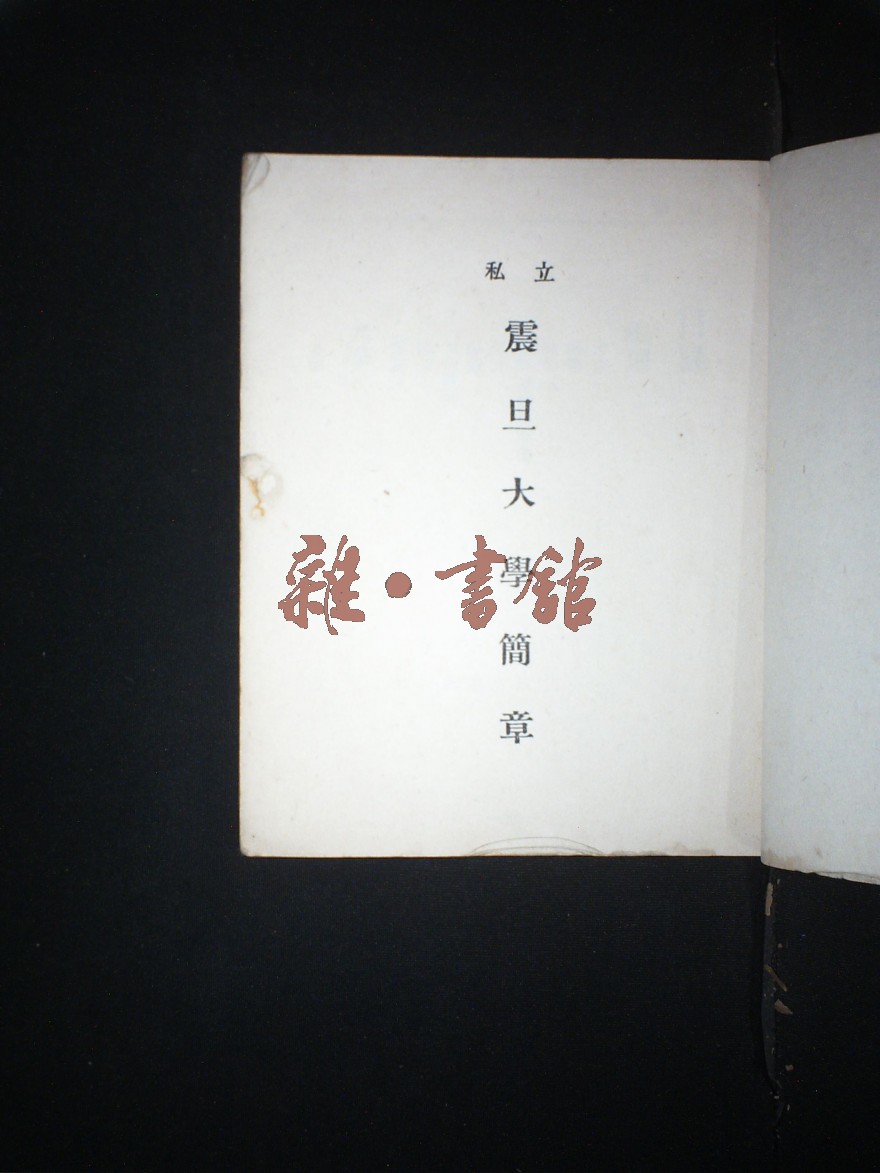 私立
震旦大學簡章
雜·書館